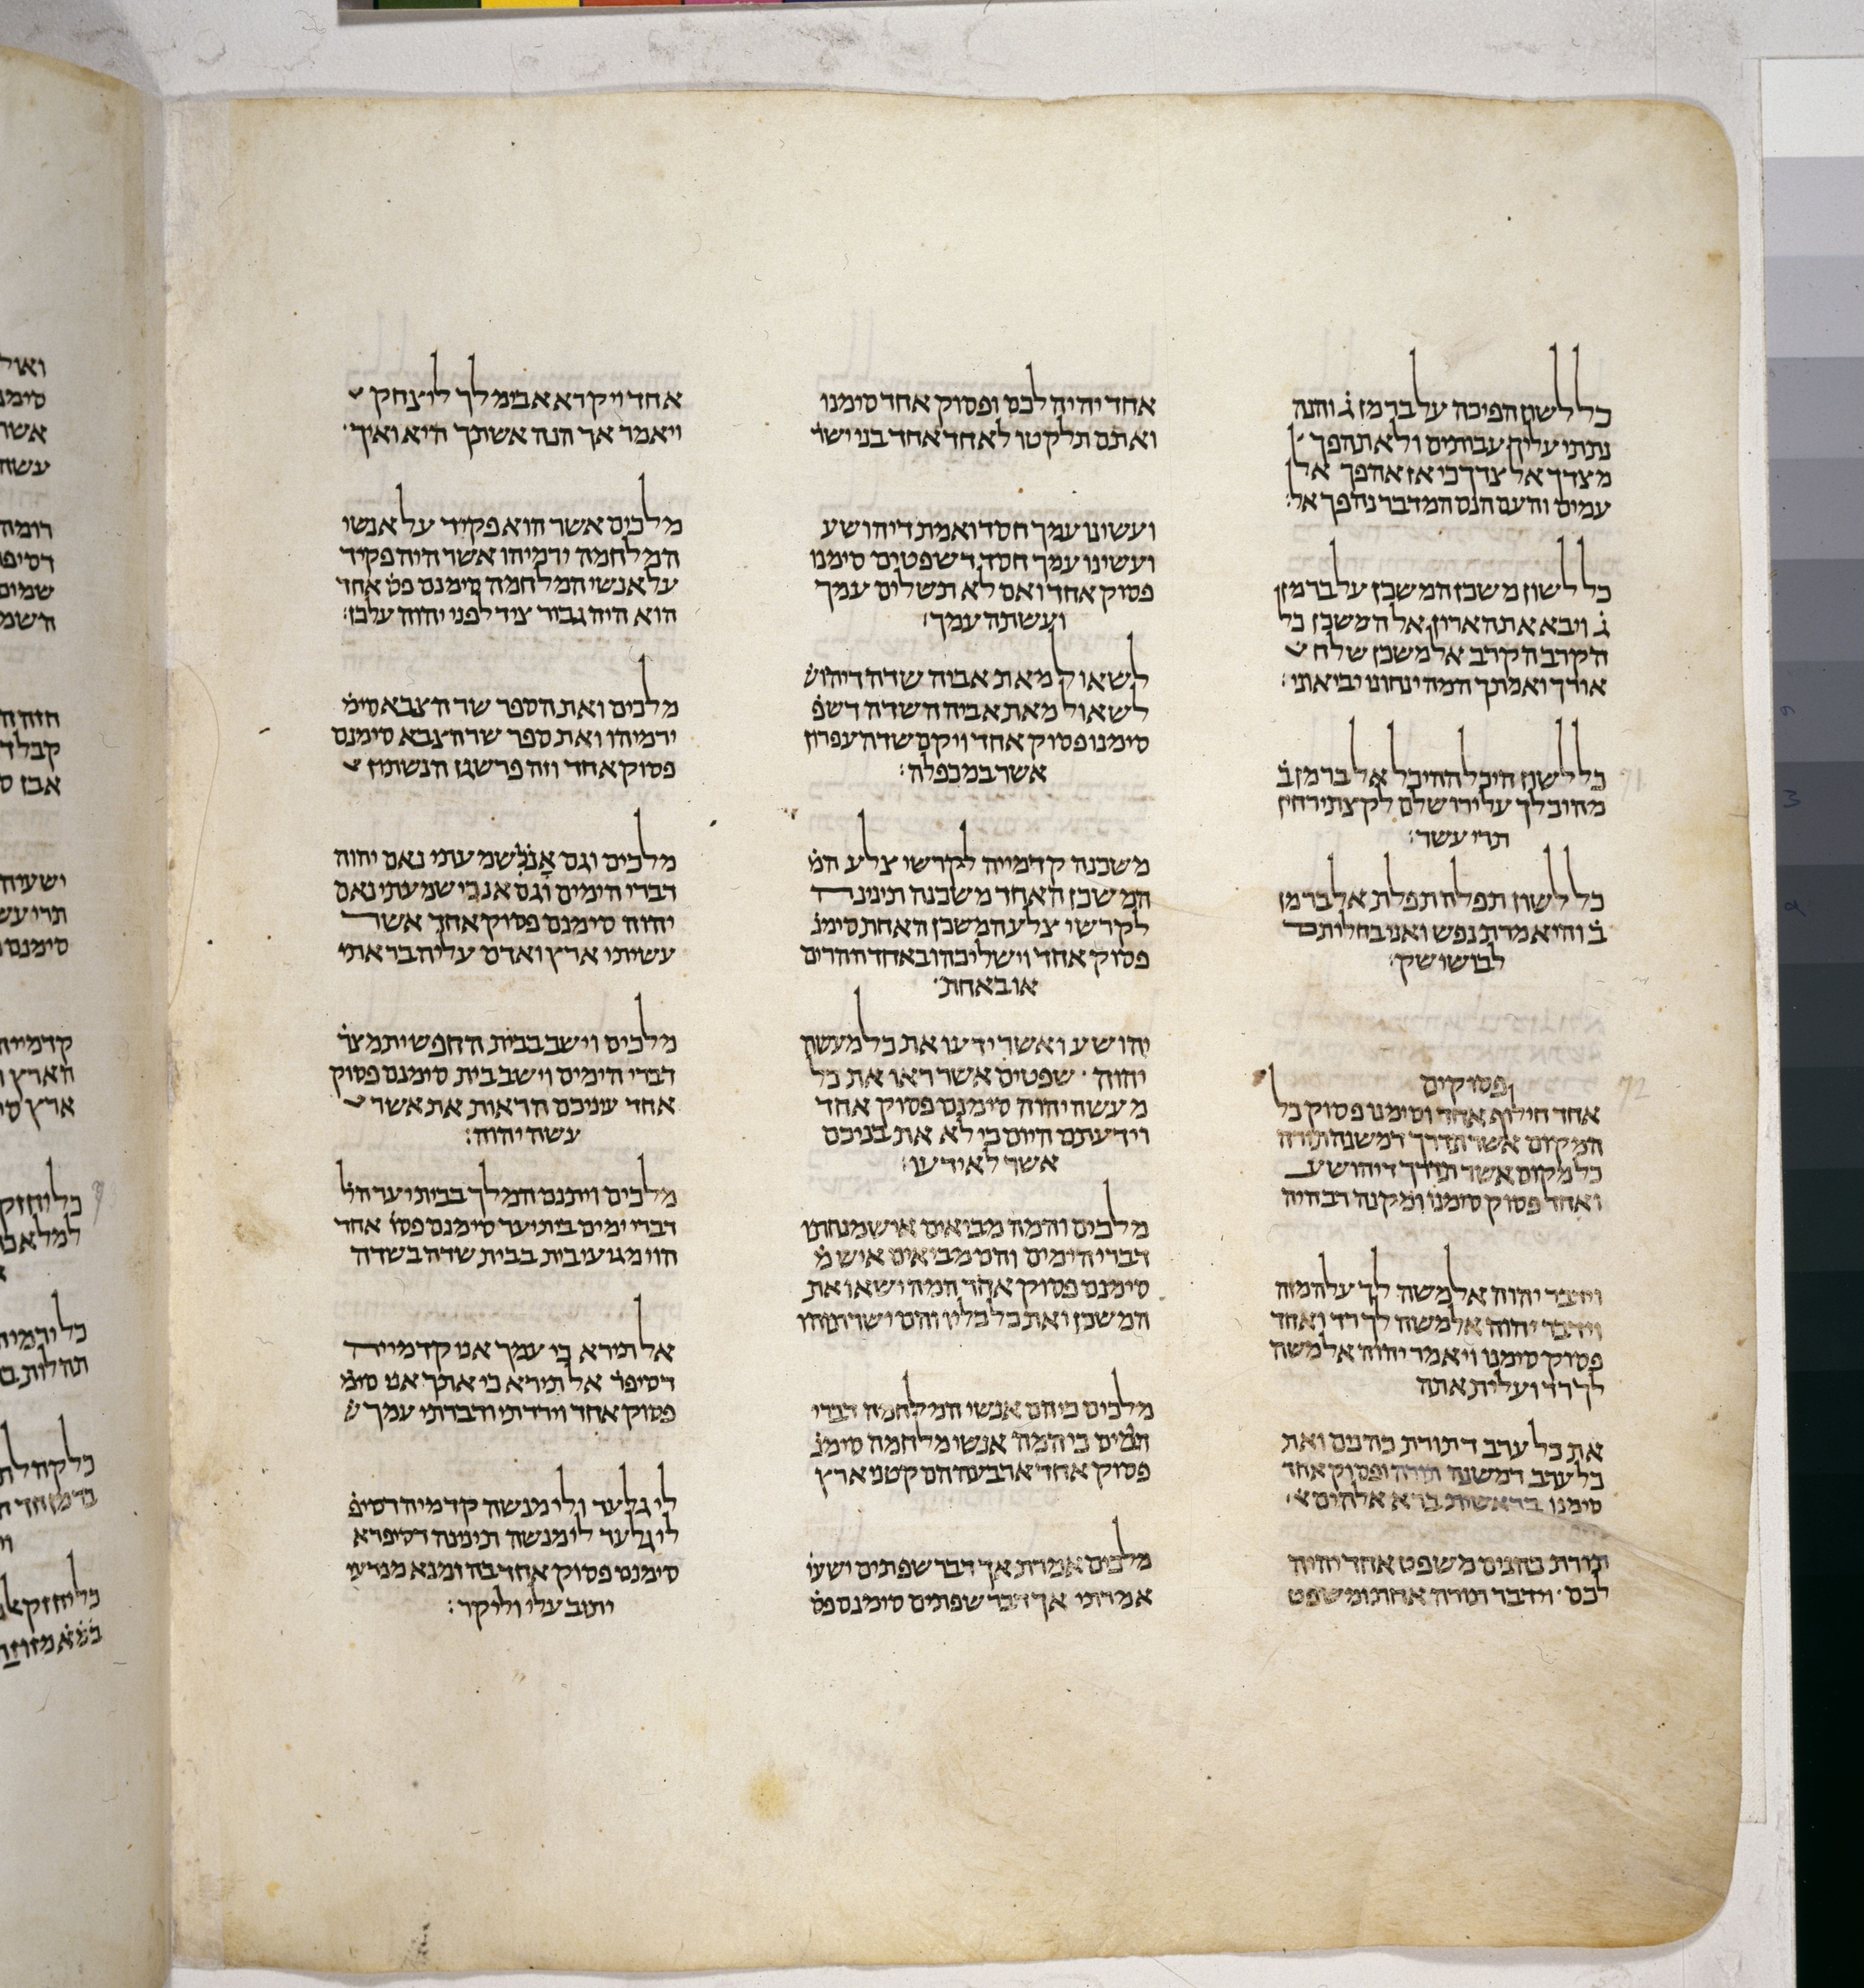 כל לשון הפיכה על בר מן ג̇ והנה
נתתי עליך עבותים ולא תהפך
מצדך אל צדך כי אז אהפך אל
עמים והעם הנס המדבר נהפך אל׃
כל לשון משכן המשכן על בר מן
ג̇ ויבא את הארון אל המשכן כל
הקרב הקרב אל משכן שלח
אורך ואמתך המה ינחוני יביאוני׃
כל לשון היכל ההיכל אל בר מן ב̇
מהיכלך על ירושלם לקצת ירחין
תרי עשר׃
כל לשון תפלה תפלת אל בר מן
ב̇ והיא מרת נפש ואני בחלותם
לבושי שק׃
פסוקים
אחד חילוף אחד וסימנו פסוק כל
המקום אשר תדרך דמשנה תורה
כל מקום אשר תדרך דיהושע
ואחד פסוק סימנו ומקנה רב היה
וידבר יהוה אל משה לך עלה מזה
וידבר יהוה אל משה לך רד ואחד
פסוק סימנו ויאמר יהוה אל משה
לך רד ועלית אתה
את כל ערב דתורת כהנים ואת
כל ערב דמשנה תורה ופסוק אחד
סימנו בראשית ברא אלהים א׳
תורת כהנים משפט אחד יהיה
לכם ׳ וידבר תורה אחת ומשפט
אחד יהיה לכם ופסוק אחד סימנו
ואתם תלקטו לאחד אחד בני ישר̇
ועשינו עמך חסד ואמת דיהושע
ועשינו עמך חסד דשפטים סימנו
פסוק אחד ואם לא תשלים עמך
ועשתה עמך׃
לשאול מאת אביה שדה דיהוש̇
לשאול מאת אביה השדה דשפ̇
סימנו פסוק אחד ויקם שדה עפרון
אשר במכפלה׃
משכנה קדמייה לקרשי צלע המ̇
המשכן האחד משכנה תינינה
לקרשי צלע המשכן האחת סימנ̇
פסוק אחד וישליכהו באחד ההרים
או באחת׃
יהושע ואשר ידעו את כל מעשה
יהוה ׳ שפטים אשר ראו את כל
מעשה יהוה סימנם פסוק אחד
וידעתם היום כי לא את בניכם
אשר לא ידעו׃
מלכים והמה מביאים איש מנחתו
דברי הימים והם מביאים איש מ̇
סימנם פסוק אחד המה ישאו את
המשכן ואת כל כליו והם ישרתהו
מלכים כיהם אנשי המלחמה דברי
הימים כי המה אנשי מלחמה סימנ̇
פסוק אחד ארבעה הם קטני ארץ
מלכים אמרת אך דבר שפתים ישעי̇
אמרתי אך דבר שפתים סימנם פס̇
אחד ויקרא אבימלך ליצחק
ויאמר אך הנה אשתך היא ואיך׳
מלכים אשר הוא פקיד על אנשי
המלחמה ירמיהו אשר היה פקיד
על אנשי המלחמה סימנם פס̇ אחד
הוא היה גבור ציד לפני יהוה על כן׃
מלכים ואת הספר שר הצבא סימ̇
ירמיהו ואת ספר שר הצבא סימנם
פסוק אחד וזה פרשגן הנשתון
מלכים וגם אנכי שמעתי נאם יהוה
דברי הימים וגם אני שמעתי נאם
יהוה סימנם פסוק אחד אשר
עשיתי ארץ ואדם עליה בראתי
מלכים וישב בבית החפשית מצר̇
דברי הימים וישב בית סימנם פסוק
אחד עיניכם הראות את אשר
עשה יהוה׃
מלכים ויתנם המלך בבית יער הל̇
דברי ימים בית יער סימנם פסו̇ אחד
הוי מגיעי בית בבית שדה בשדה
אל תירא כי עמך אני קדמייה
דסיפר̇ אל תירא כי אתך אני סימ̇
פסוק אחד וירדתי ודברתי עמך ש̇
לי גלעד ולי מנשה קדמיה דסיפ̇
לי גלעד לי מנשה תינינה דסיפרא
סימנם פסוק אחד בה זמנא מנדעי
יתוב עלי וליקר׃